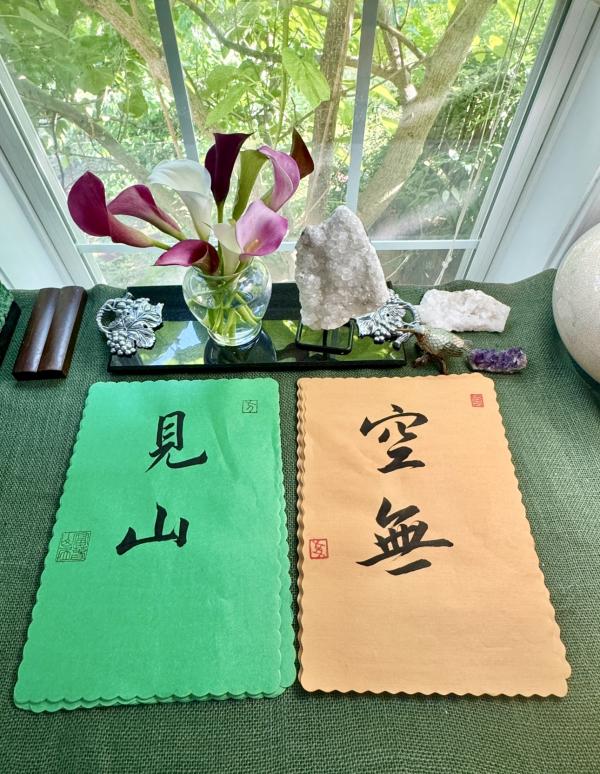 見
山
空
無